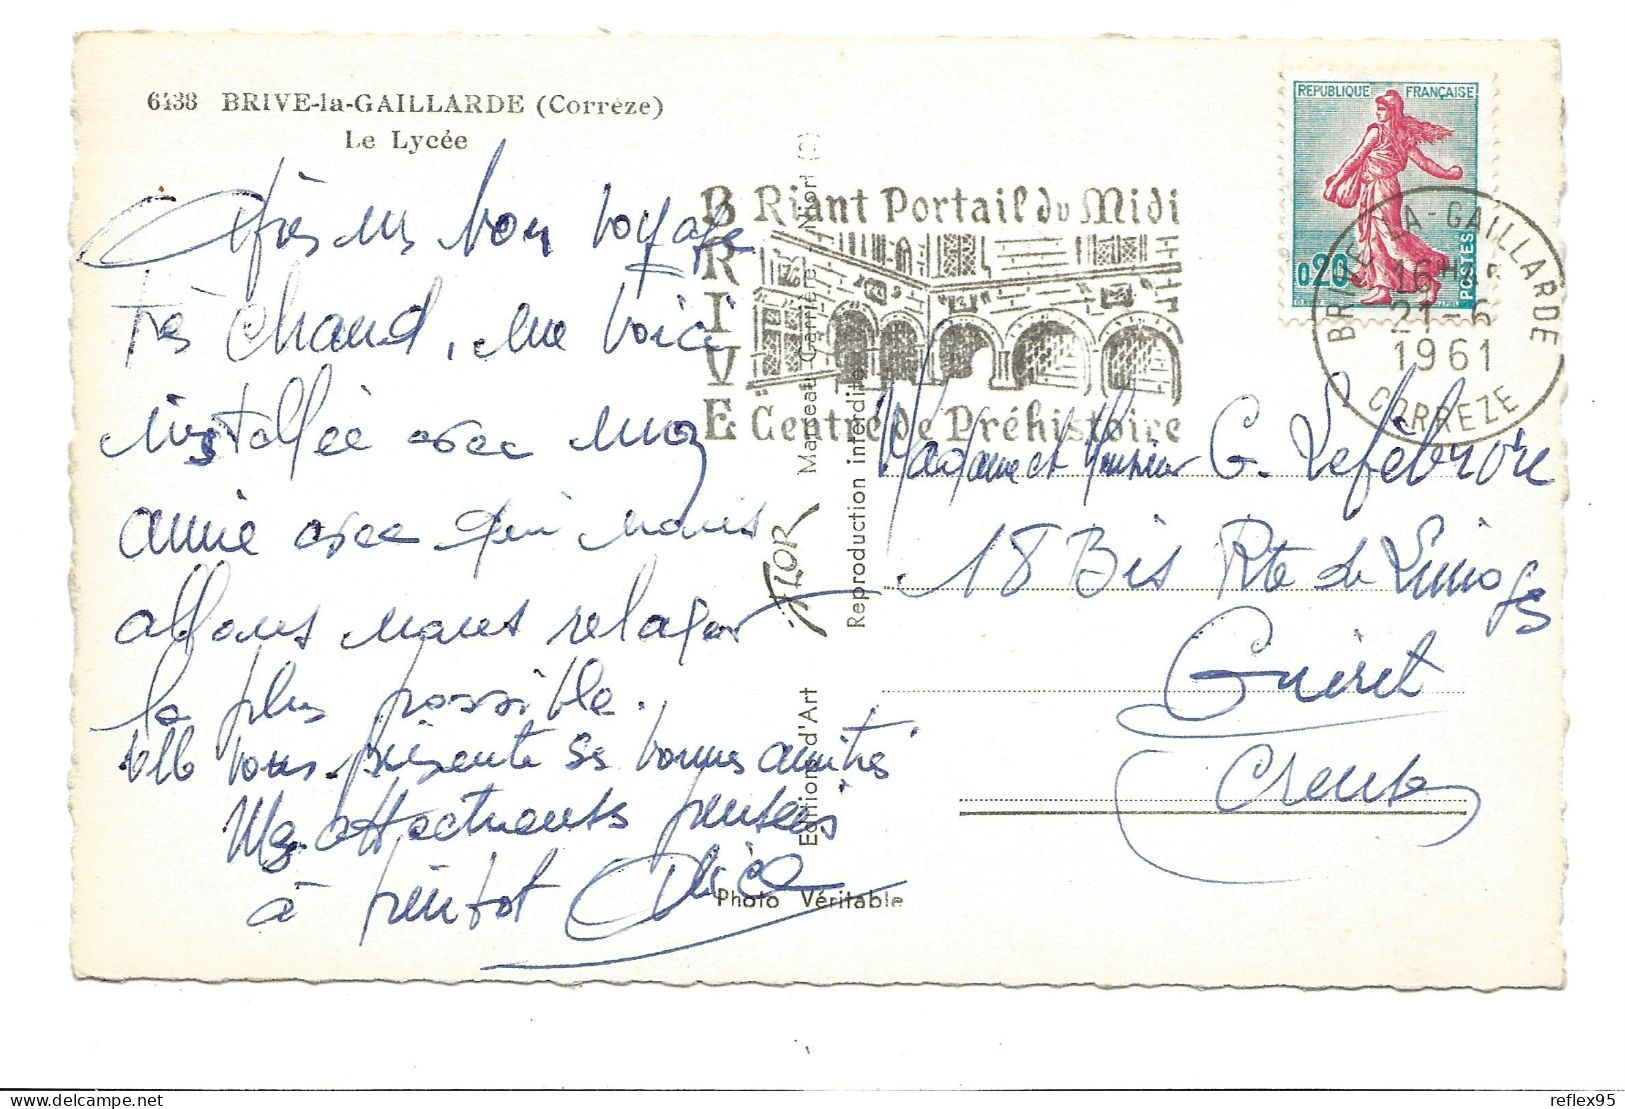 6438 BRIVE-la-GAILLARDE (Corrèze)
Le Lycée
Après un bon voyage
très chaud, me voici
installée avec mon
amie avec qui nous
allons nous relaxer
le plus possible.
elle vous présente ses bonnes amitiés
Mes affectueuses pensées
à bientôt Alice
BRIVE
Riant Portail du Midi
Centre de Préhistoire
Editions d'Art JLOR Marceau Carrière Niort (C)
Reproduction interdite
Photo Véritable
REPUBLIQUE FRANÇAISE
0,20
POSTES
BRIVE-LA-GAILLARDE
16H
21-6
1961
CORREZE
Madame et Monsieur G. Lefebvre
18 Bis Rte de Limoges
Guéret
Creuse
reflex95